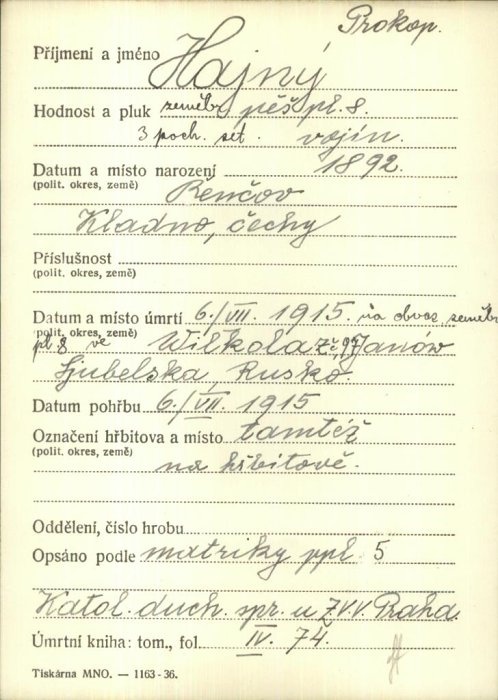 Prokop.
Příjmení a jméno Hajný
Hodnost a pluk zeměbr. pěš. pl. 8.
3 poch. set. vojín.
Datum a místo narození 1892.
(polit. okres, země) Řenčov
Kladno, čechy
Příslušnost
(polit. okres, země)
Datum a místo úmrtí 6./VII. 1915. na obvaz. zeměbr
(polit. okres, země)
pl. 8 ve Wilkolaz Janów
Ljubelska, Rusko.
Datum pohřbu 6./VII. 1915
Označení hřbitova a místo tamtéž
(polit. okres, země) na hřbitově.
Oddělení, číslo hrobu
Opsáno podle matriky ppl. 5
Katol. duch. spr. u Z.V.V. Praha.
Úmrtní kniha: tom., fol. IV. 74.
Tiskárna MNO. — 1163-36.